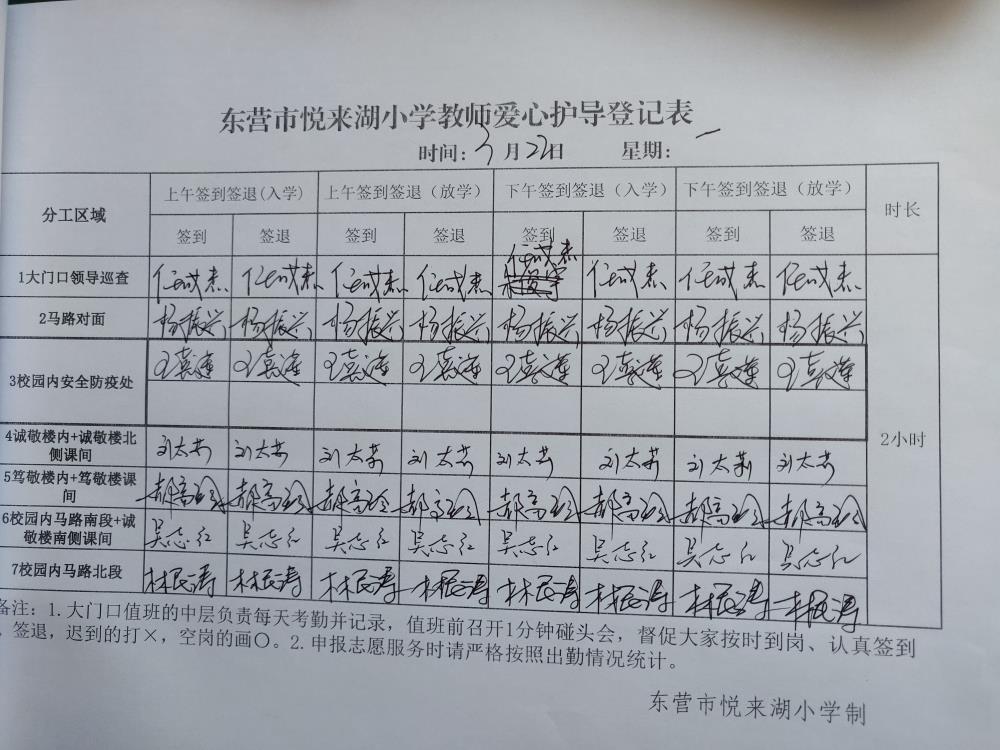 东营市悦来湖小学教师爱心护导登记表
时间：3月22日 星期：一
分工区域 上午签到签退(入学) 上午签到签退（放学） 下午签到签退（入学） 下午签到签退（放学） 时长
签到 签退 签到 签退 签到 签退 签到 签退
1大门口领导巡查 任成杰 任成杰 任成杰 任成杰 任成杰 任成杰 任成杰 任成杰
2马路对面 杨振兴 杨振兴 杨振兴 杨振兴 杨振兴 杨振兴 杨振兴 杨振兴
3校园内安全防疫处
2小时
4诚敬楼内+诚敬楼北
侧课间 刘太芳 刘太芳 刘太芳 刘太芳 刘太芳 刘太芳 刘太芳 刘太芳
5笃敬楼内+笃敬楼课
间 郝高玲 郝高玲 郝高玲 郝高玲 郝高玲 郝高玲 郝高玲 郝高玲
6校园内马路南段+诚
敬楼南侧课间 吴志红 吴志红 吴志红 吴志红 吴志红 吴志红 吴志红 吴志红
7校园内马路北段 林民涛 林民涛 林民涛 林民涛 林民涛 林民涛 林民涛 林民涛
备注：1.大门口值班的中层负责每天考勤并记录，值班前召开1分钟碰头会，督促大家按时到岗、认真签到
、签退，迟到的打×，空岗的画〇。2.申报志愿服务时请严格按照出勤情况统计。
东营市悦来湖小学制